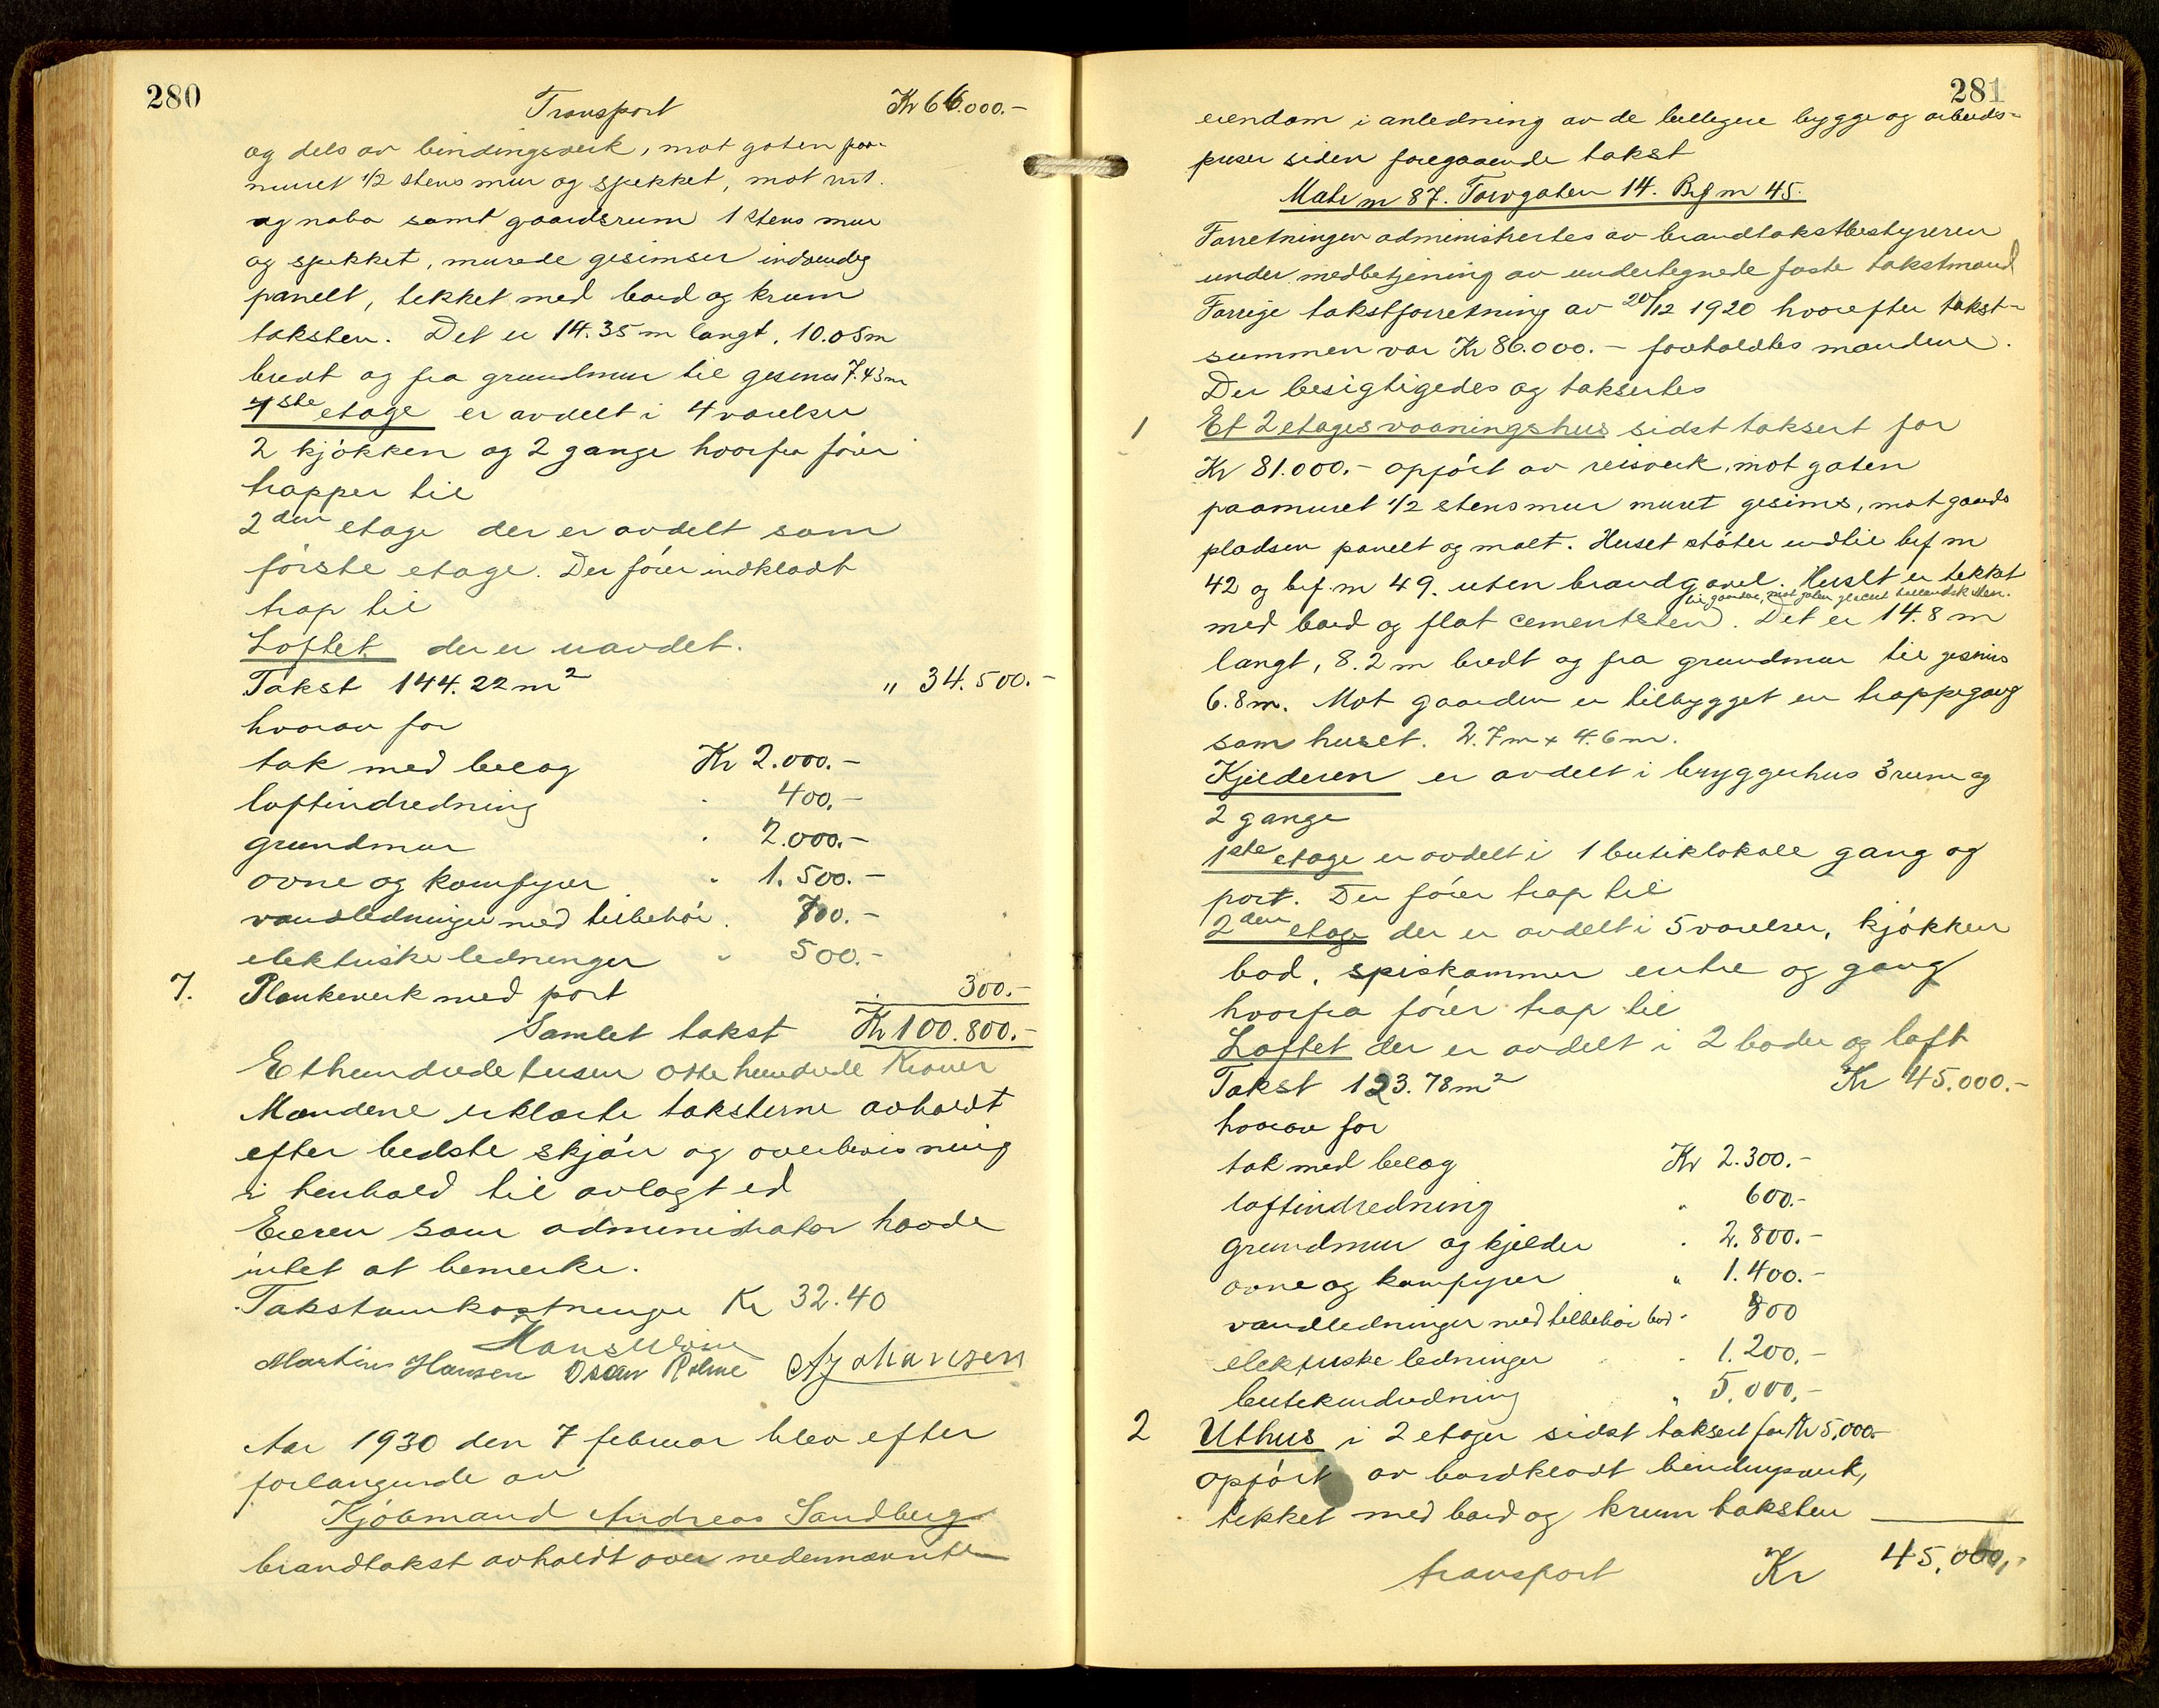 280
Transport Kr 66.000.-
og dels av bindingsverk, mot gaten paa-
muret 1/2 stens mur og spekket, mot
og nabo samt gaardsrum 1 stens mur
og spekket, murede gesimser indvendig
panelt, tekket med bord og krum
taksten. Det er 14.35 m langt, 10.05m
bredt og fra grundmur til gesims 7.43m
1ste etage er avdelt i 4 værelser
2 kjøkken og 2 gange hvorfra fører
trapper til
2den etage der er avdelt som
første etage. Der fører indklædt
trap til
Loftet der er uavdelt.
Takst 144.22 m2 " 34.500.-
hvorav for
tak med belæg Kr 2.000.-
loftindredning " 400.-
grundmur " 2.000.-
ovne og komfyrer " 1.500.-
vandledninger med tilbehør " 700.-
elektriske ledninger " 500.-
7. Plankeverk med port " 300.-
Samlet takst Kr 100.800.-
Ethundrede tusen otte hundrede Kroner
Mændene erklærte taksterne avholdt
efter bedste skjøn og overbevisning
i henhold til avlagt ed
Eieren som administrator havde
intet at bemerke.
Takstomkostninger Kr 32.40
Martin Hansen Oscar Holme A Johansen
Aar 1930 den 7 februar blev efter
forlangende av
Kjøbmand Andreas Sandberg
brandtakst avholdt over nedennævnte
281
eiendom i anledning av de billigere bygge og arbeids-
priser siden foregaaende takst
Matr nr 87. Torvgaten 14. Brf nr 45.
Forretningen administrertes av brandtakstbestyreren
under medbetjening av undertegnede faste takstmænd
Forrige takstforretning av 20/12 1920 hvorefter takst-
summen var Kr 86.000.- forholdtes mændene.
Der besigtigedes og taksertes
1 Et 2 etages vaaningshus sidst taksert for
Kr 81.000.- opført av reisverk, mot gaten
paamuret 1/2 stens mur muret gesims, mot gaards
pladsen panelt og malt. Huset støter indtil brf nr
42 og brf. nr 49. uten brandgavel. Huset er tekket
til gaarden, mot gaten glasert hollandsk sten.
med bord og flat cementsten. Det er 14.8 m
langt, 8.2 m bredt og fra grundmur til gesims
6.8 m. Mot gaarden er tilbygget en trappegang
som huset. 2.7 m x 4.6 m.
Kjelderen er avdelt i bryggerhus 3 rum og
2 gange
1ste etage er avdelt i 1 butiklokale gang og
port. Der fører trap til
2den etage der er avdelt i 5 værelser, kjøkken
bod, spiskammer entre og gang
hvorfra fører trap til
Loftet der er avdelt i 2 boder og loft
Takst 123.78 m2 Kr 45.000.-
hvorav for
tak med belæg Kr 2.300.-
loftindredning " 600.-
grundmur og kjelder " 2.800.-
ovne og komfyrer " 1.400.-
vandledninger med tilbehør bad " 800
elektriske ledninger " 1.200.-
butikindredning " 5.000.-
2 Uthus i 2 etager sidst taksert for Kr 5.000.-
opført av bordklædt bindingsverk,
tekket med bord og krum taksten
transport Kr 45.000,-